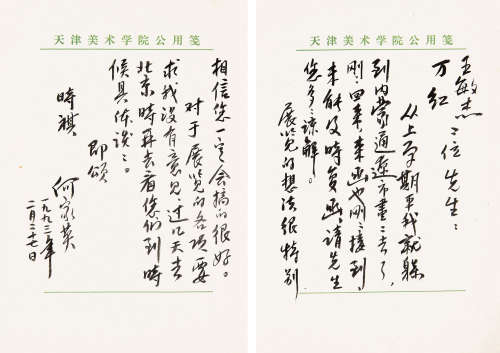 天津美术学院公用笺
王敏杰
万红 二位先生：
从上学期末我就躲
到内蒙通辽市画〻去了，
刚回来，来函也刚〻接到，
未能及時复函，请先生
您多谅解。
展览的想法很特别
天津美术学院公用笺
相信您一定会搞的很好。
对于展览的各项要
求我没有意见，过几天去
北京時再去看您们，到時
候具体谈〻。
即颂
時祺
何家英
一九九三年
二月二十七日